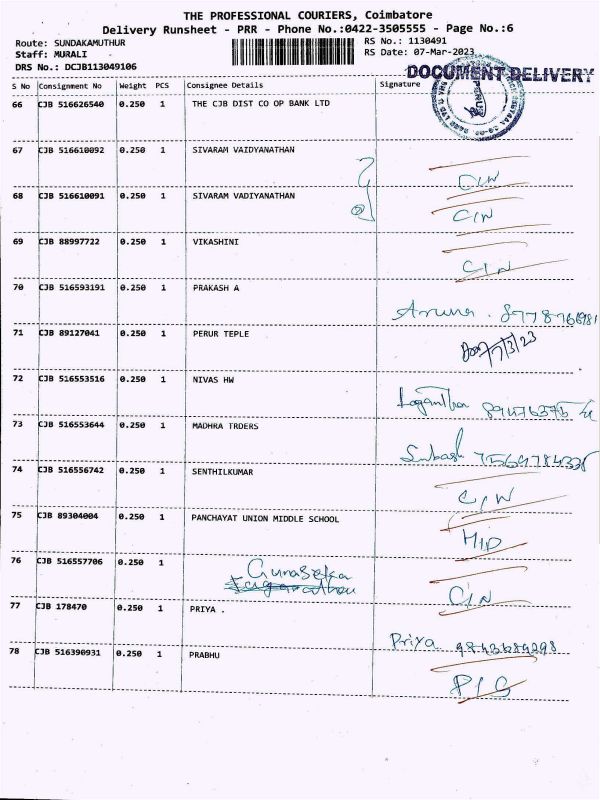 THE PROFESSIONAL COURIERS, Coimbatore
Delivery Runsheet - PRR - Phone No.:0422-3505555 - Page No.:6
Route: SUNDAKAMUTHUR RS No.: 1130491
Staff: MURALI RS Date: 07-Mar-2023
DRS No.: DCJB113049106
DOCUMENT DELIVERY
S No Consignment No Weight PCS Consignee Details Signature
66 CJB 516626540 0.250 1 THE CJB DIST CO OP BANK LTD
67 CJB 516610092 0.250 1 SIVARAM VAIDYANATHAN
C/N
68 CJB 516610091 0.250 1 SIVARAM VADIYANATHAN
C/N
69 CJB 88997722 0.250 1 VIKASHINI
C/N
70 CJB 516593191 0.250 1 PRAKASH A
Aruna.
71 CJB 89127041 0.250 1 PERUR TEPLE
7/3/23
72 CJB 516553516 0.250 1 NIVAS HW
73 CJB 516553644 0.250 1 MADHRA TRDERS
Subash
74 CJB 516556742 0.250 1 SENTHILKUMAR
C/N
75 CJB 89304004 0.250 1 PANCHAYAT UNION MIDDLE SCHOOL
76 CJB 516557706 0.250 1
Gunaseka
C/N
77 CJB 178470 0.250 1 PRIYA .
Priya
78 CJB 516390931 0.250 1 PRABHU